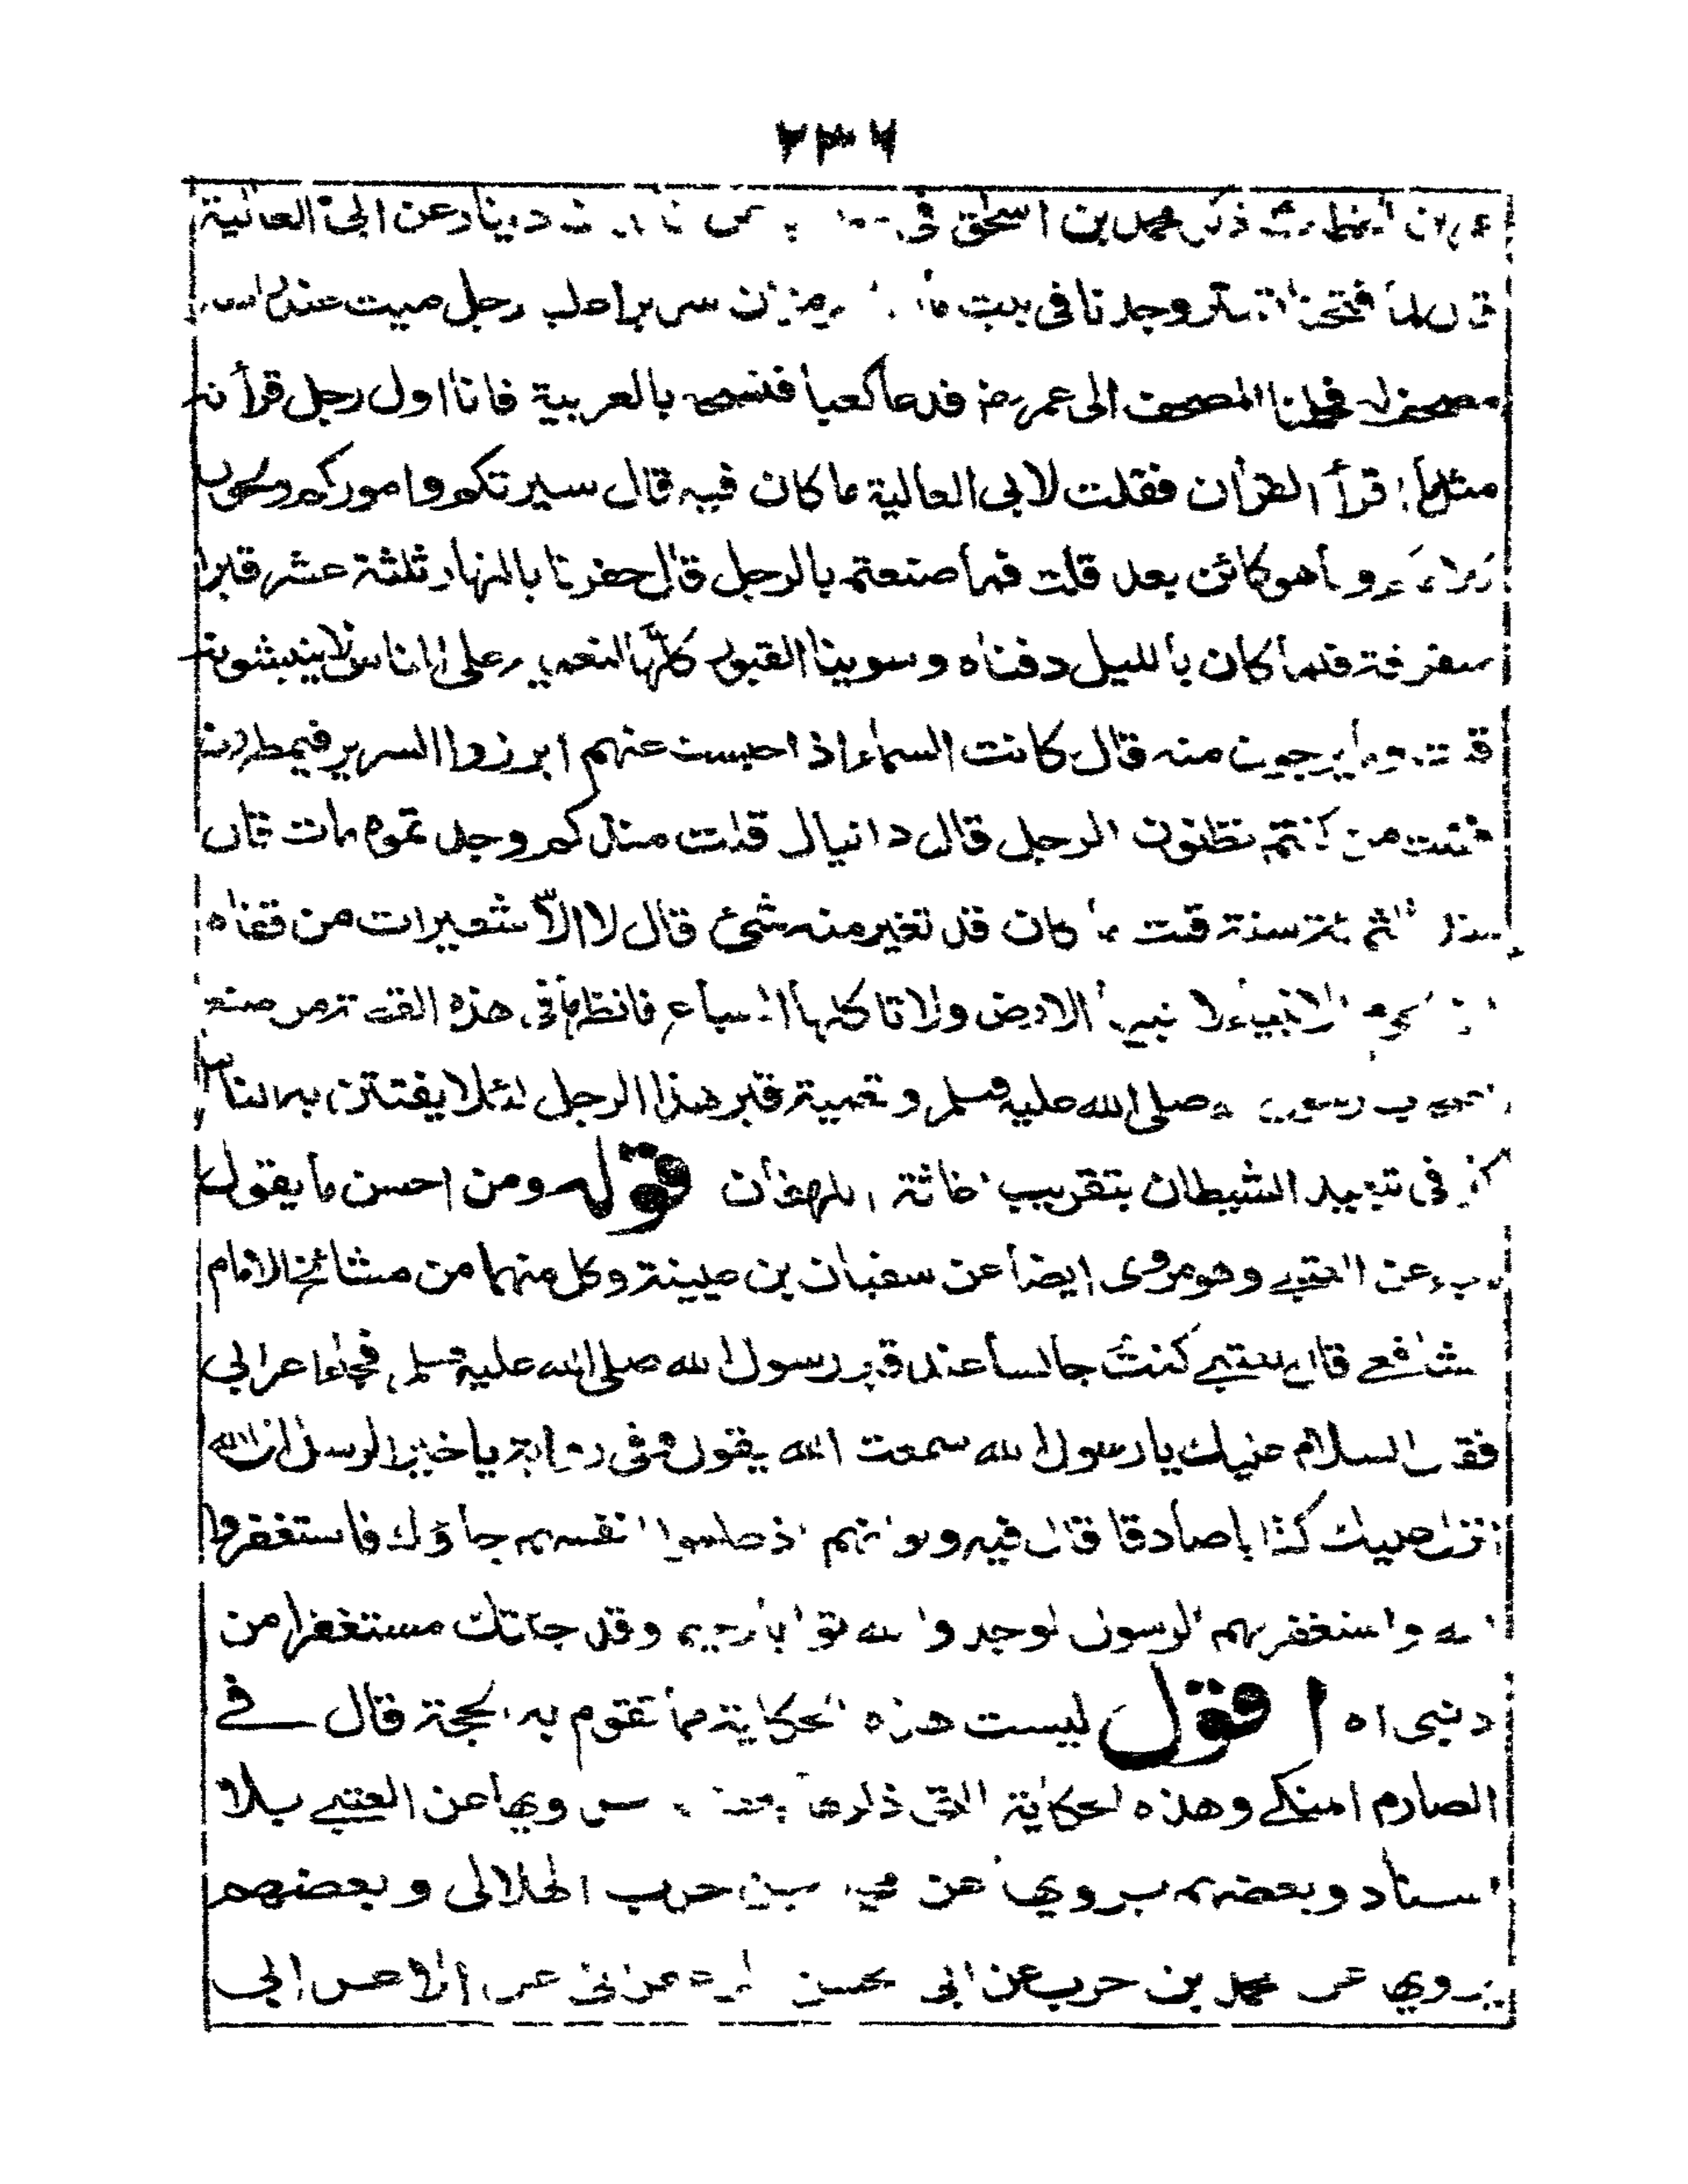 ۲۳۶
ذكر محمد بن اسحٰق فى دينار عن ابى العالية
فتحنا تستر وجدنا فى بيت سريرا عليه رجل ميت عند راسه
مصحف له فحملنا المصحف الى عمر رض فدعا كعبا فنسخه بالعربية فانا اول رجل قرأته
مثلما اقرأ القرأن فقلت لابى العالية ما كان فيه قال سيرتكم واموركم ولحون
كلامكم وما هو كائن بعد قلت فما صنعتم بالرجل قال حفرنا بالنهار ثلثة عشر قبرا
متفرقة فلما كان بالليل دفناه وسوينا القبور كلها لنعميه على الناس لا ينبشونه
قلت وما يرجون منه قال كانت السماء اذا حبست عنهم ابرزوا السرير فيمطرون
فقلت من كنتم تظنون الرجل قال دانيال قلت منذ كم وجدتموه مات قال
منذ ثلثمائة سنة قلت ما كان قد تغير منه شئ قال لا الا شعيرات من قفاه
ان لحوم الانبياء لا تبليها الارض ولا تأكلها السباع فانظر ما فى هذه القصة من صنع
اصحاب رسول الله صلى الله عليه وسلم وتعمية قبر هذا الرجل لئلا يفتتن به الناس
فى تبعيد الشيطان بتقريب اغاثة اللهفان قوله ومن احسن ما يقول
عن العتبى وهو مروى ايضا عن سفيان بن عيينة وكل منهما من مشائخ الامام
الشافعى قال العتبى كنت جالسا عند قبر رسول الله صلى الله عليه وسلم فجاء اعرابى
فقال السلام عليك يا رسول الله سمعت الله يقول وفى رواية يا خير الرسل ان الله
انزل عليك كتابا صادقا قال فيه ولو انهم اذ ظلموا انفسهم جاؤك فاستغفروا
الله واستغفر لهم الرسول لوجدوا الله توابا رحيما وقد جئتك مستغفرا من
ذنبى اه اقول ليست هذه الحكاية مما تقوم به الحجة قال فى
الصارم المنكى وهذه الحكاية التى ذكرها بعضهم يرويها عن العتبى بلا
اسناد وبعضهم يرويها عن محمد بن حرب الهلالى وبعضهم
يرويها عن محمد بن حرب عن ابى الحسن الزعفرانى عن الاعرابى